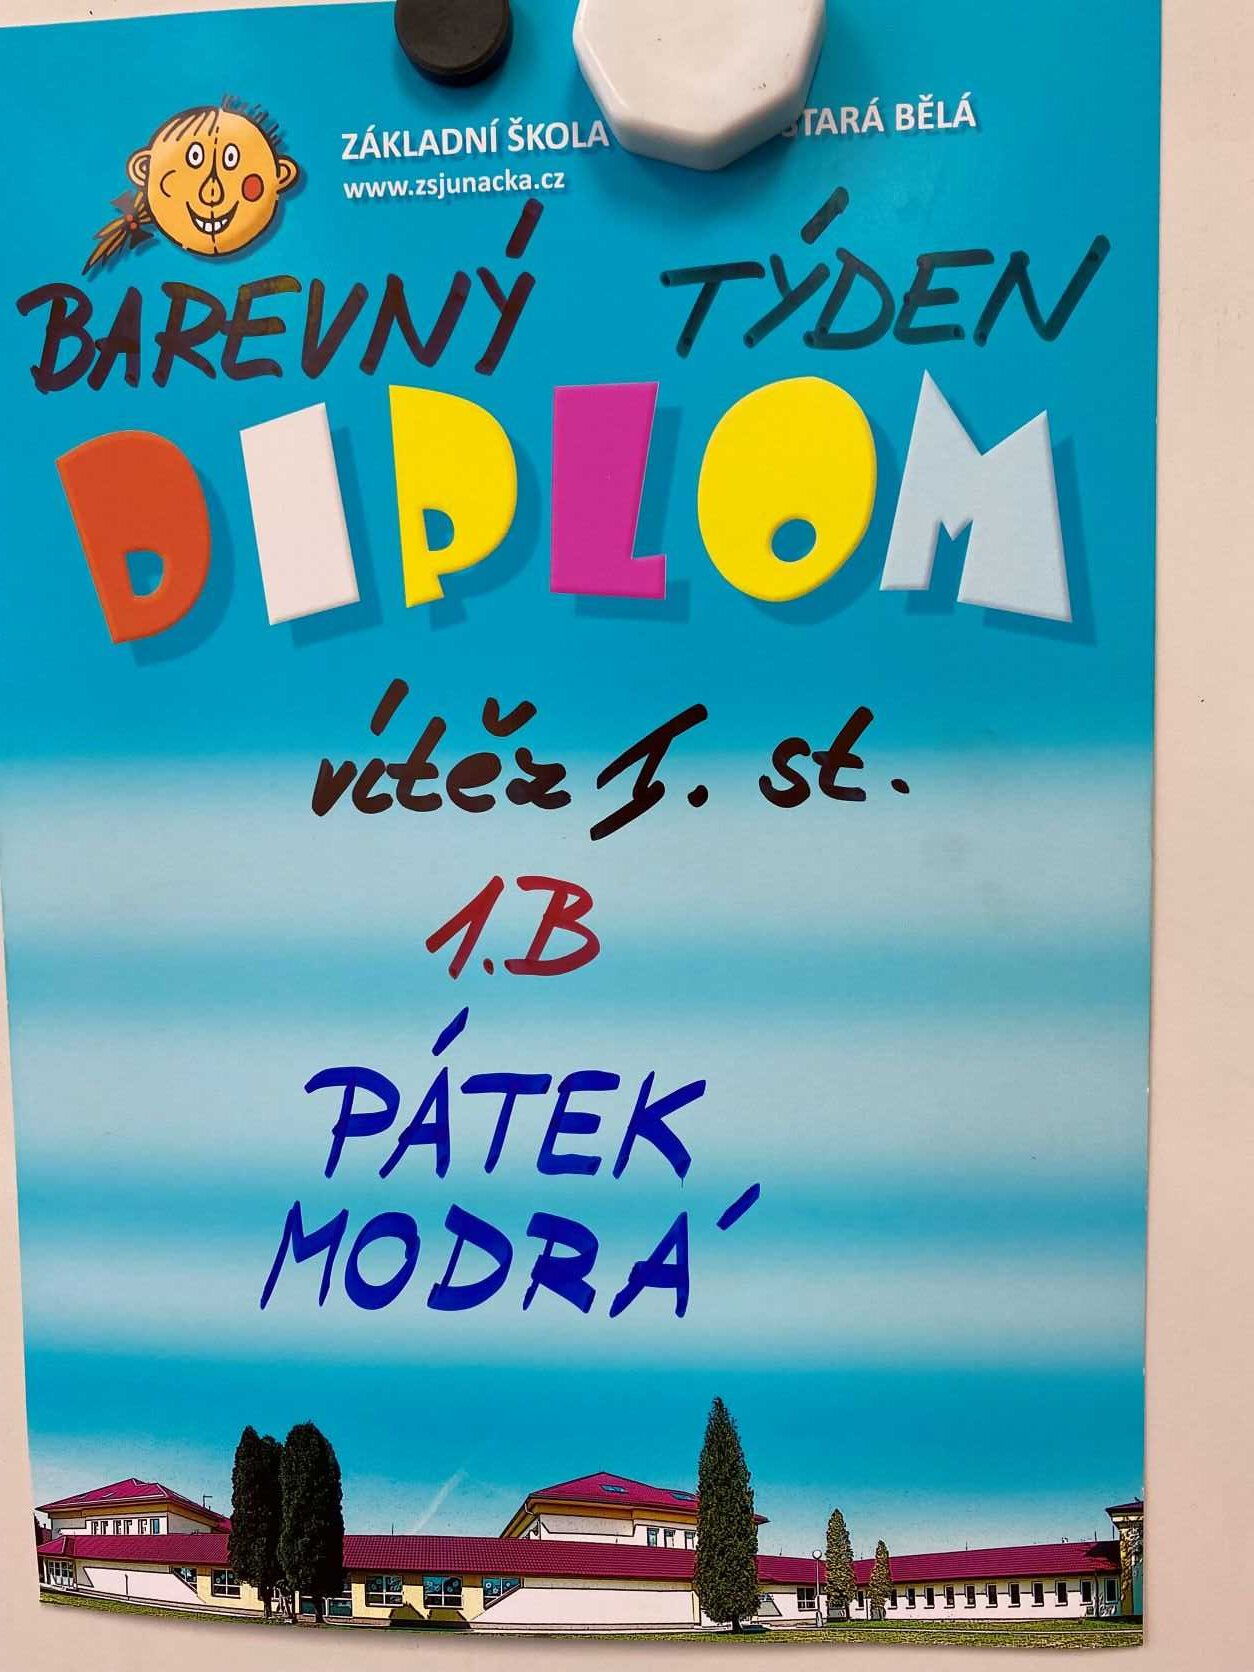 ZÁKLADNÍ ŠKOLA STARÁ BĚLÁ
www.zsjunacka.cz
BAREVNÝ TÝDEN
DIPLOM
vítěz I. st.
1.B
PÁTEK
MODRÁ